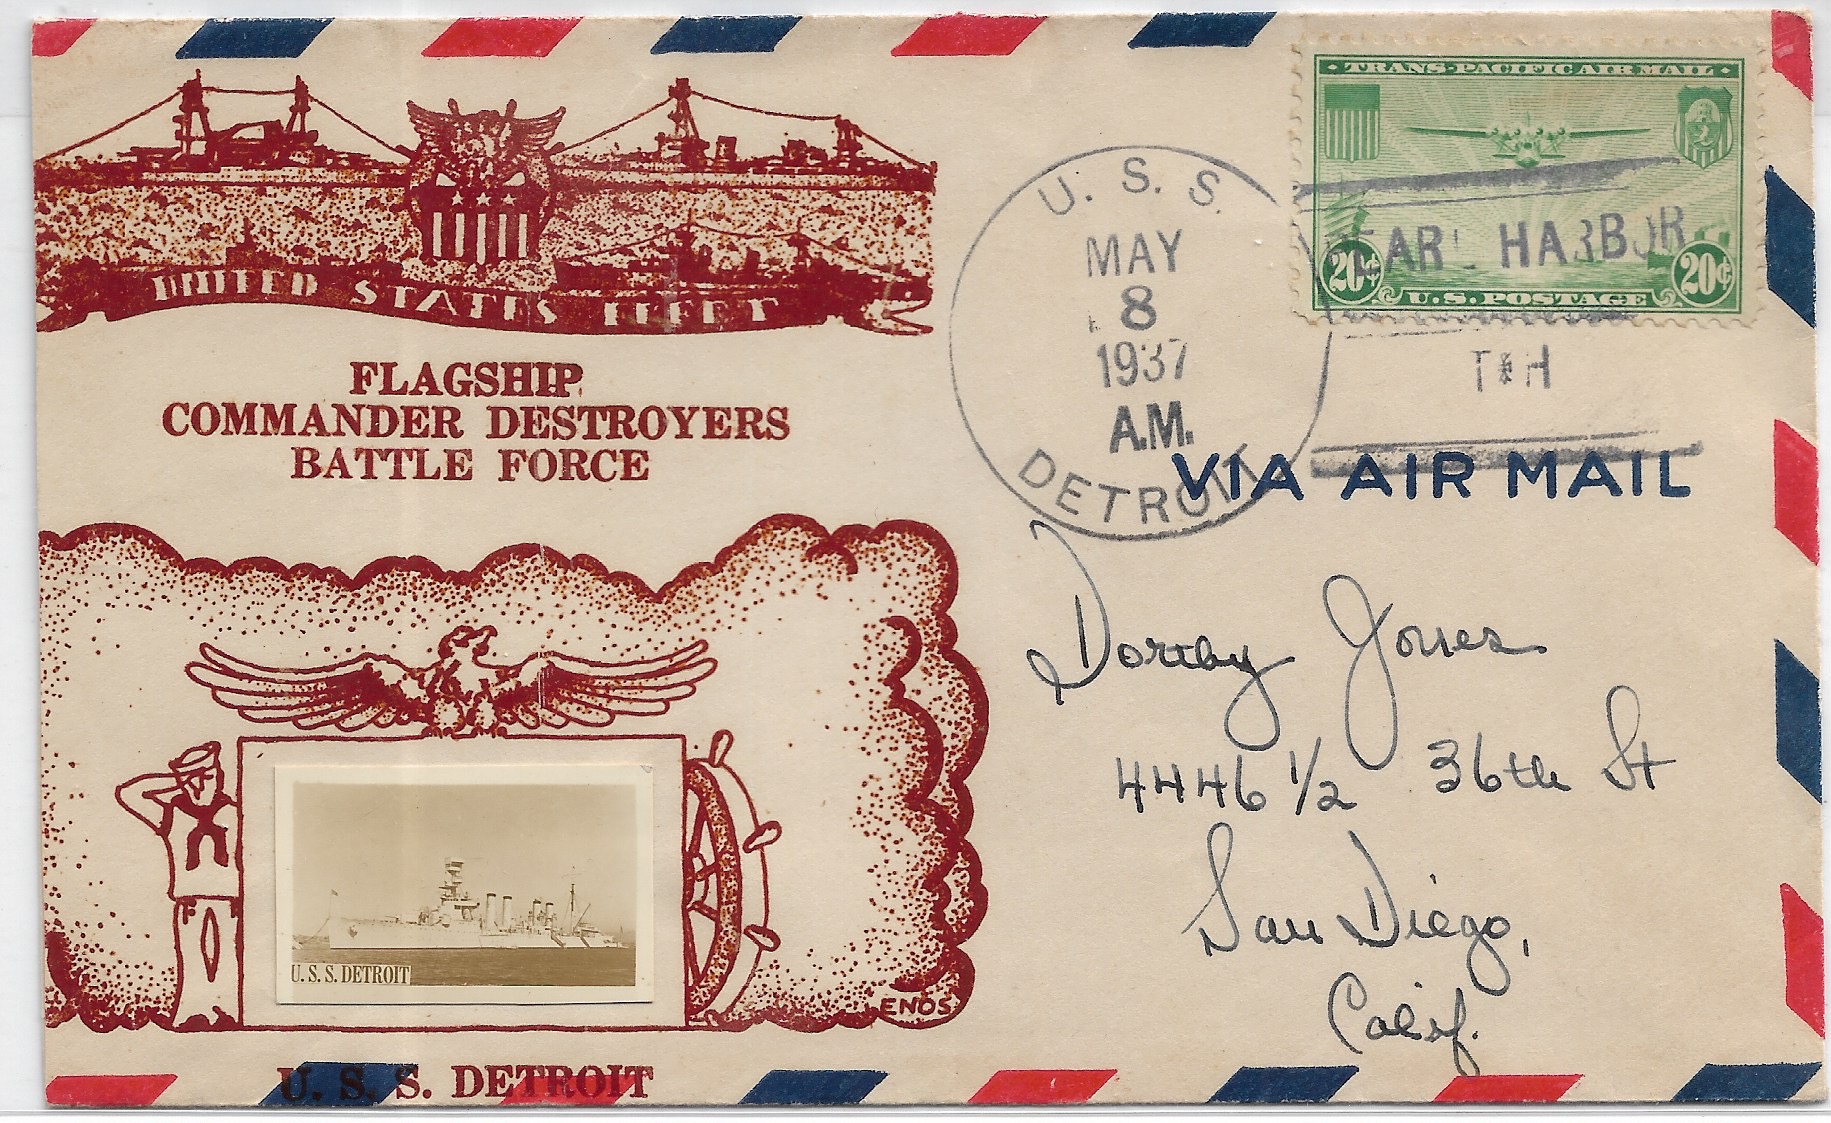 UNITED STATES FLEET
FLAGSHIP
COMMANDER DESTROYERS
BATTLE FORCE
U.S.S. DETROIT
ENOS
U. S. S. DETROIT
U. S. S.
MAY
8
1937
A.M.
DETROIT
TRANS-PACIFIC AIR MAIL
PEARL HARBOR
20¢ 20¢
U.S. POSTAGE
T H
VIA AIR MAIL
Dorthy Jones
4446 1/2 36th St
San Diego,
Calif.